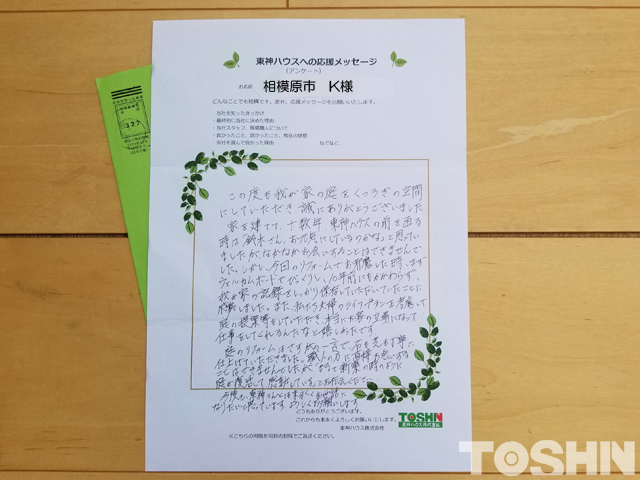 東神ハウスへの応援メッセージ
(アンケート)
お名前 相模原市 K様
どんなことでも結構です。是非、応援メッセージをお願いいたします。
・当社を知ったきっかけ
・最終的に当社に決めた理由
・当社スタッフ、現場職人について
・良かったこと、助かったこと、現在の感想
・当社を選んで良かった理由 などなど。
この度も我が家の庭をくつろぎの空間
にしていただき誠にありがとうございました。
家を建てて、十数年 東神ハウスの前を通る
時は「鈴木さん、お元気にしているのかな」と思ってい
ましたがなかなかお会いすることはできませんで
した。しかし、今回のリフォームでお邪魔した時、まず
ウェルカムボードでびっくりし、10年前にもかかわらず、
我が家の記録をしっかり保存していただいていたことに
感動しました。また、私たち夫婦のライフプランを考慮して
庭の提案等をしていただき、本当にお客の立場になって
仕事をしてくれるんだなと嬉しかったです
庭のリフォームはさすがの一言で、石も芝も丁寧に
仕上げていただきました。職人の方に直接お会いする
ことはできませんでしたが、まるで新築の時のように
庭が復活して感動している、とお伝えください。
今後も、東神さんとは末永くお世話に
なりたいと思っています。よろしくお願いします
どうもありがとうございます。
これからも末永くよろしくお願いいたします。
東神ハウス株式会社
TOSHIN
東神ハウス株式会社
※こちらの用紙を同封の封筒でご返送ください。
327
TOSHIN